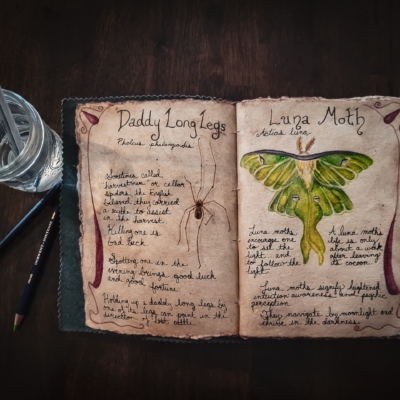 Daddy Long Legs
Pholcus phalangioides
Sometimes called
harvestmen or cellar
spiders the English
believed they carried
a scythe to assist
in the harvest.
Killing one is
bad luck
Spotting one in the
evening brings good luck
and good fortune
Holding up a daddy long legs by
one of its legs can point in the
direction of lost cattle
Luna Moth
Actias luna
Luna moths
encourage one
to seek the
light and
to follow the
light
A luna moths
life is only
about a week
after leaving
its cocoon
Luna moths signify heightened
intuition awareness and psychic
perception
They navigate by moonlight and
thrive in the darkness